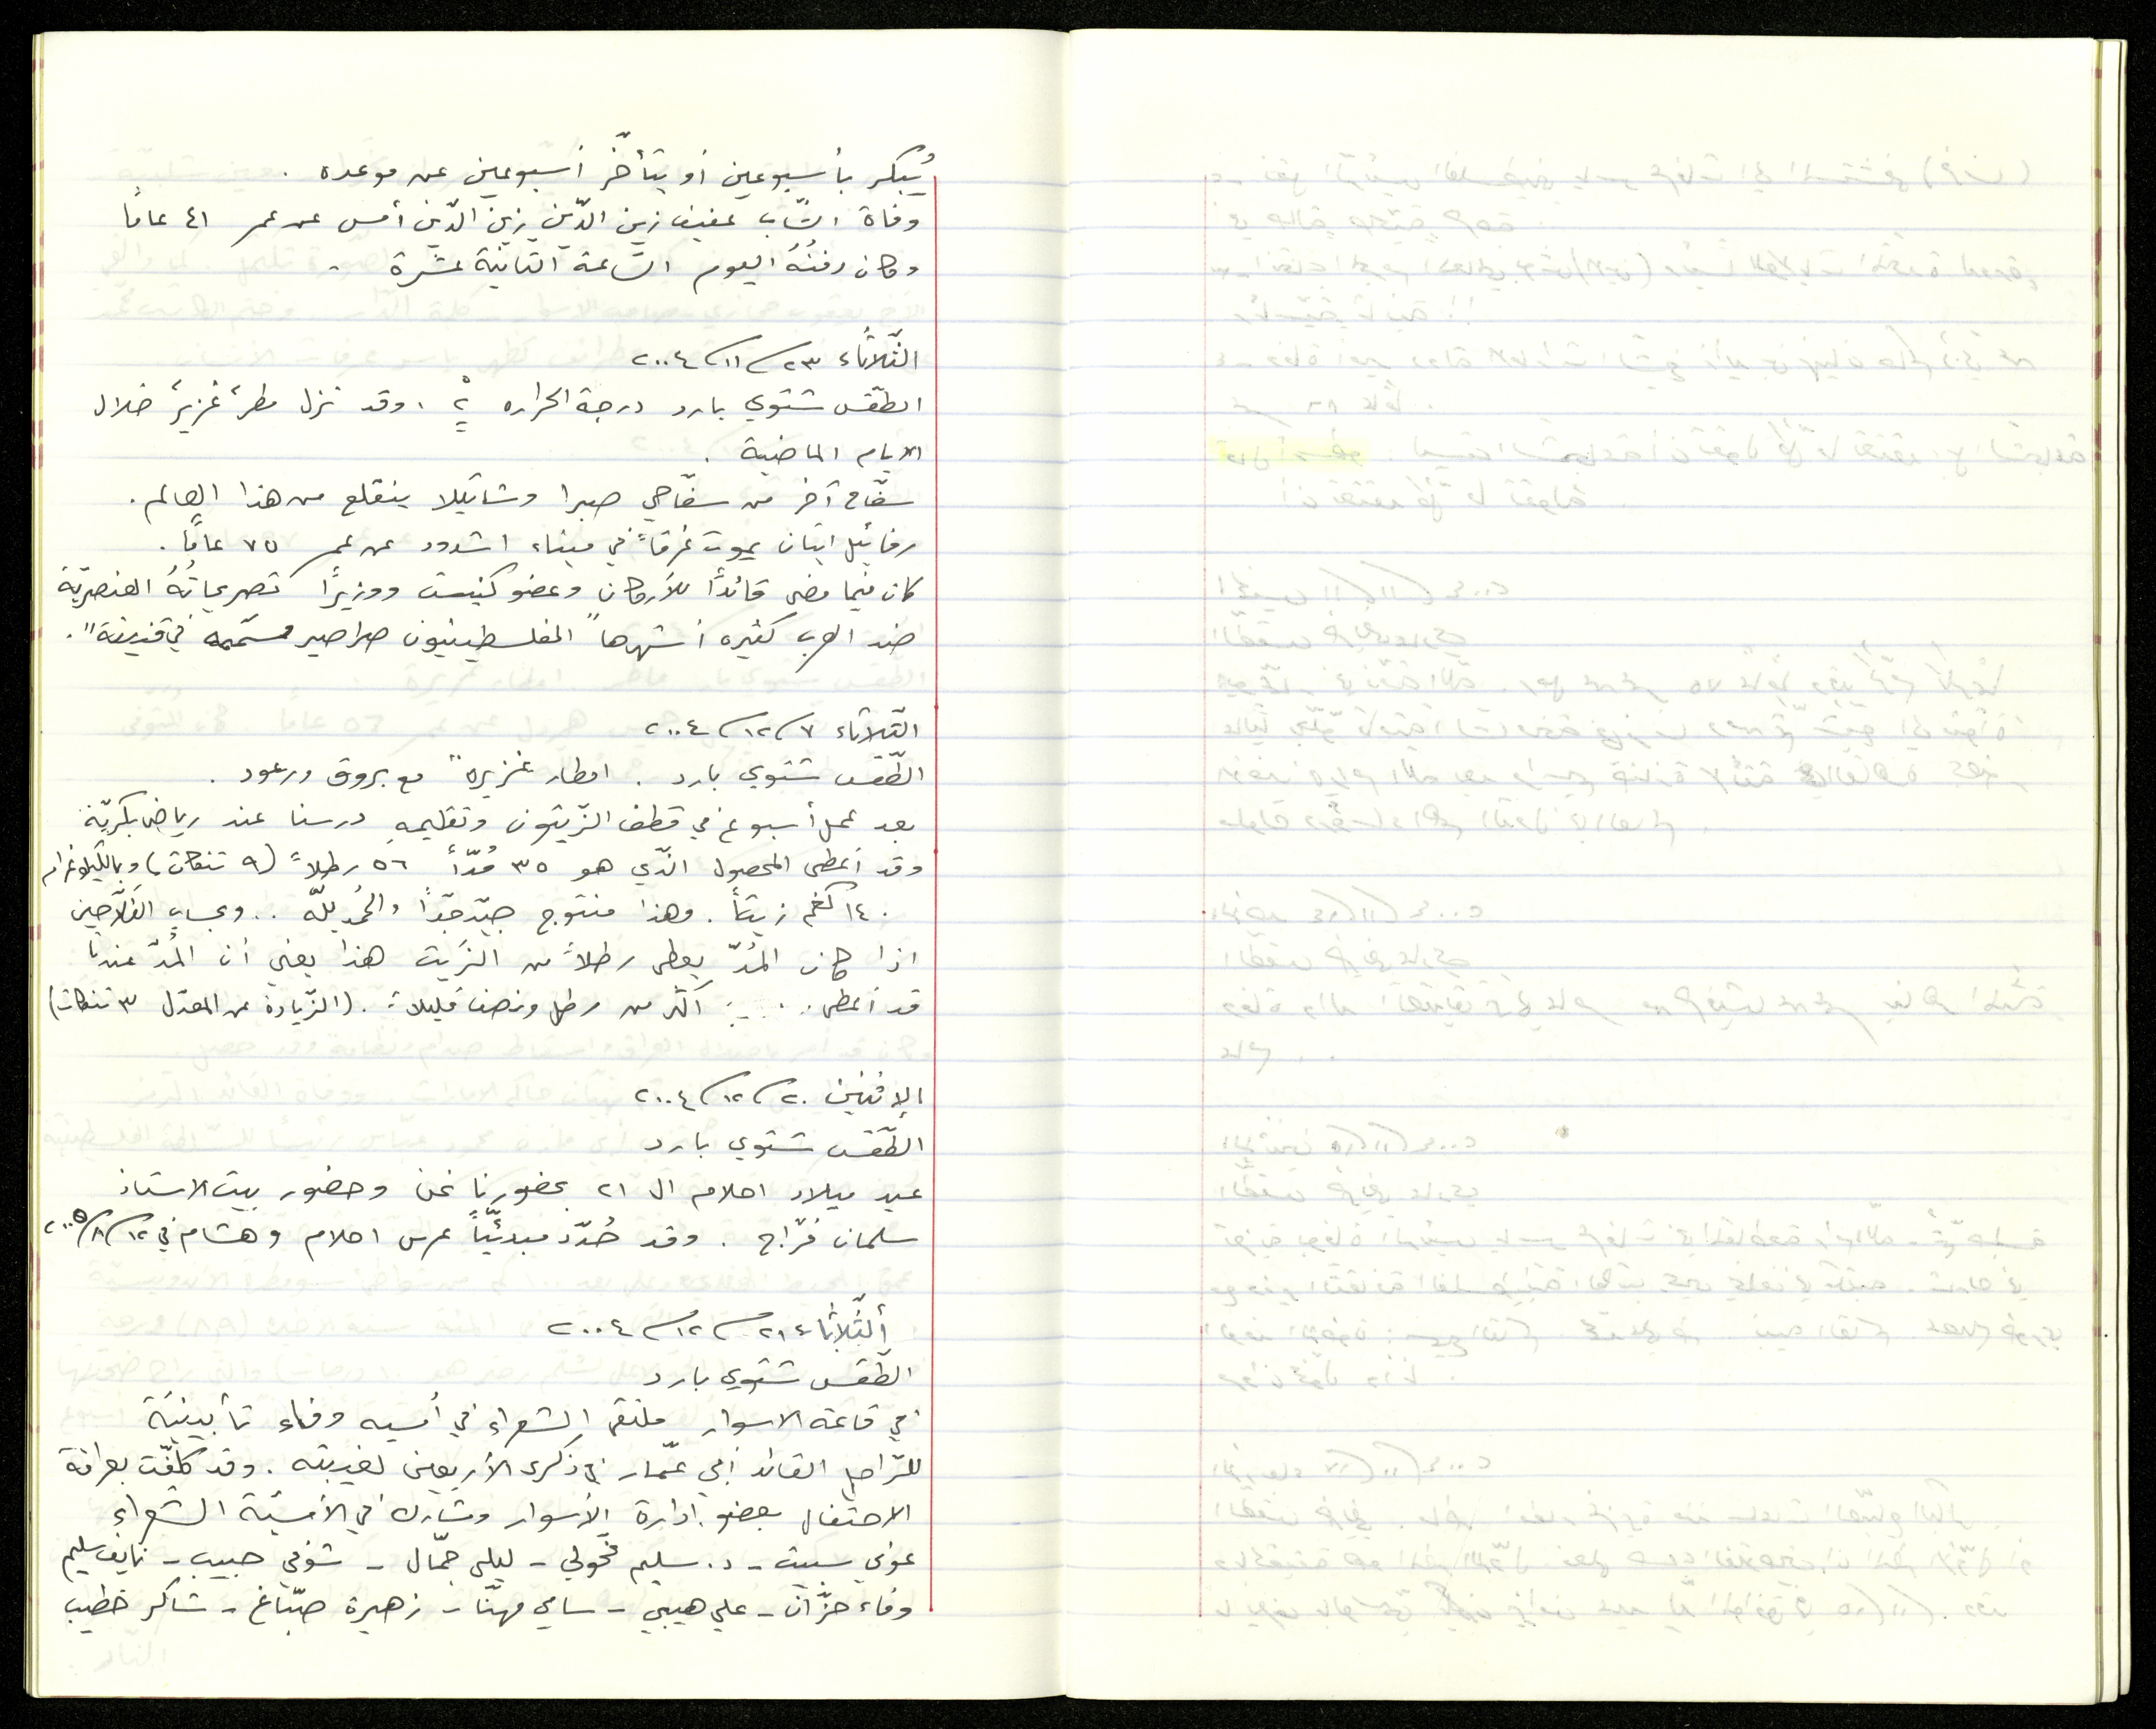 يُبكر بأسبوعين أو يتأخّر أسبوعين عن موعده .
وفاة الشّاب عفيف زين الدّين زين الدّين أمس عن عمر ٤١ عامًا
وكان دفنُهُ اليوم السّاعة الثانية عشرة .
الثّلاثاء ٢٣/١١/٢٠٠٤
الطّقس شتوي بارد درجة الحراره ٢ْ . وقد نزل مطرٌ غزيرٌ خلال
الايام الماضية .
سفّاح آخر من سفّاحي صبرا وشاتيلا ينقلع من هذا العالم .
رفائيل ايتان يموت غرقاً في ميناء اشدود عن عمر ٧٥ عامًا .
كان فيما مضى قائدًا للأركان وعضو كنيست ووزيرًا تصريحاتُهُ العنصريّة
ضد العرب كثيره أشهرها "الفلسطينيون صراصير مسمّمه في قنينة" .
الثّلاثاء ٧/١٢/٢٠٠٤
الطّقس شتوي بارد . امطار غزيرة مع بروق ورعود .
بعد عمل أسبوع في قطف الزّيتون وتقليمه درسنا عند رياض بكريّة
وقد أعطى المحصول الّذي هو ٣٥ مُدّاً ٥٦ رطلاً (٩ تنكات) وبالكيلوغرام
١٤٠ كغم زيتاً . وهذا منتوج جيّد جدّاً والحمد للّه .. وبحساب الفلّاحين
اذا كان المُدّ يعطي رطلاً من الزّيت هذا يعني أن المُدّ عندنا
قد أعطى أكثر من رطل ونصف قليلاً . (الزّيادة عن المعدّل ٣ تنكات)
الإثنين ٢٠/١٢/٢٠٠٤
الطّقس شتوي بارد
عيد ميلاد احلام ال ٢١ بحضورنا نحن وحضور بيت الاستاذ
سلمان فرّاج . وقد حُدّد مبدئيّاً عرس احلام وهشام في ١٢/٨/٢٠٠٥
ألثّلاثاء ٢١/١٢/٢٠٠٤
الطّقس شتوي بارد
في قاعة الاسوار ملتقى الشعراء في أمسيه وفاء تأبينيّة
للرّاحل القائد أبي عمّار في ذكرى الأربعين لغيبته . وقد كلّفت بعرافة
الاحتفال بعضو إدارة الأسوار وشارك في الأمسيّة الشّعراء
عوني سبيت - د. سليم مخّولي - ليلى جمّال - شوقي حبيب - نايف سليم
وفاء حزّان - علي هيبي - سامي مهنّا - زهيرة صبّاغ - شاكر خطيب